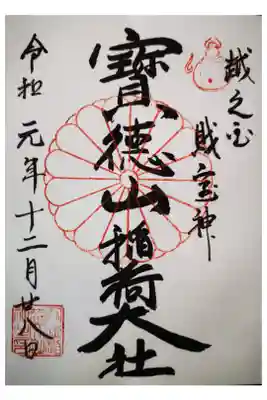 越之宝
賜宝神
寳徳山稲荷大社
令和元年十二月廿八日